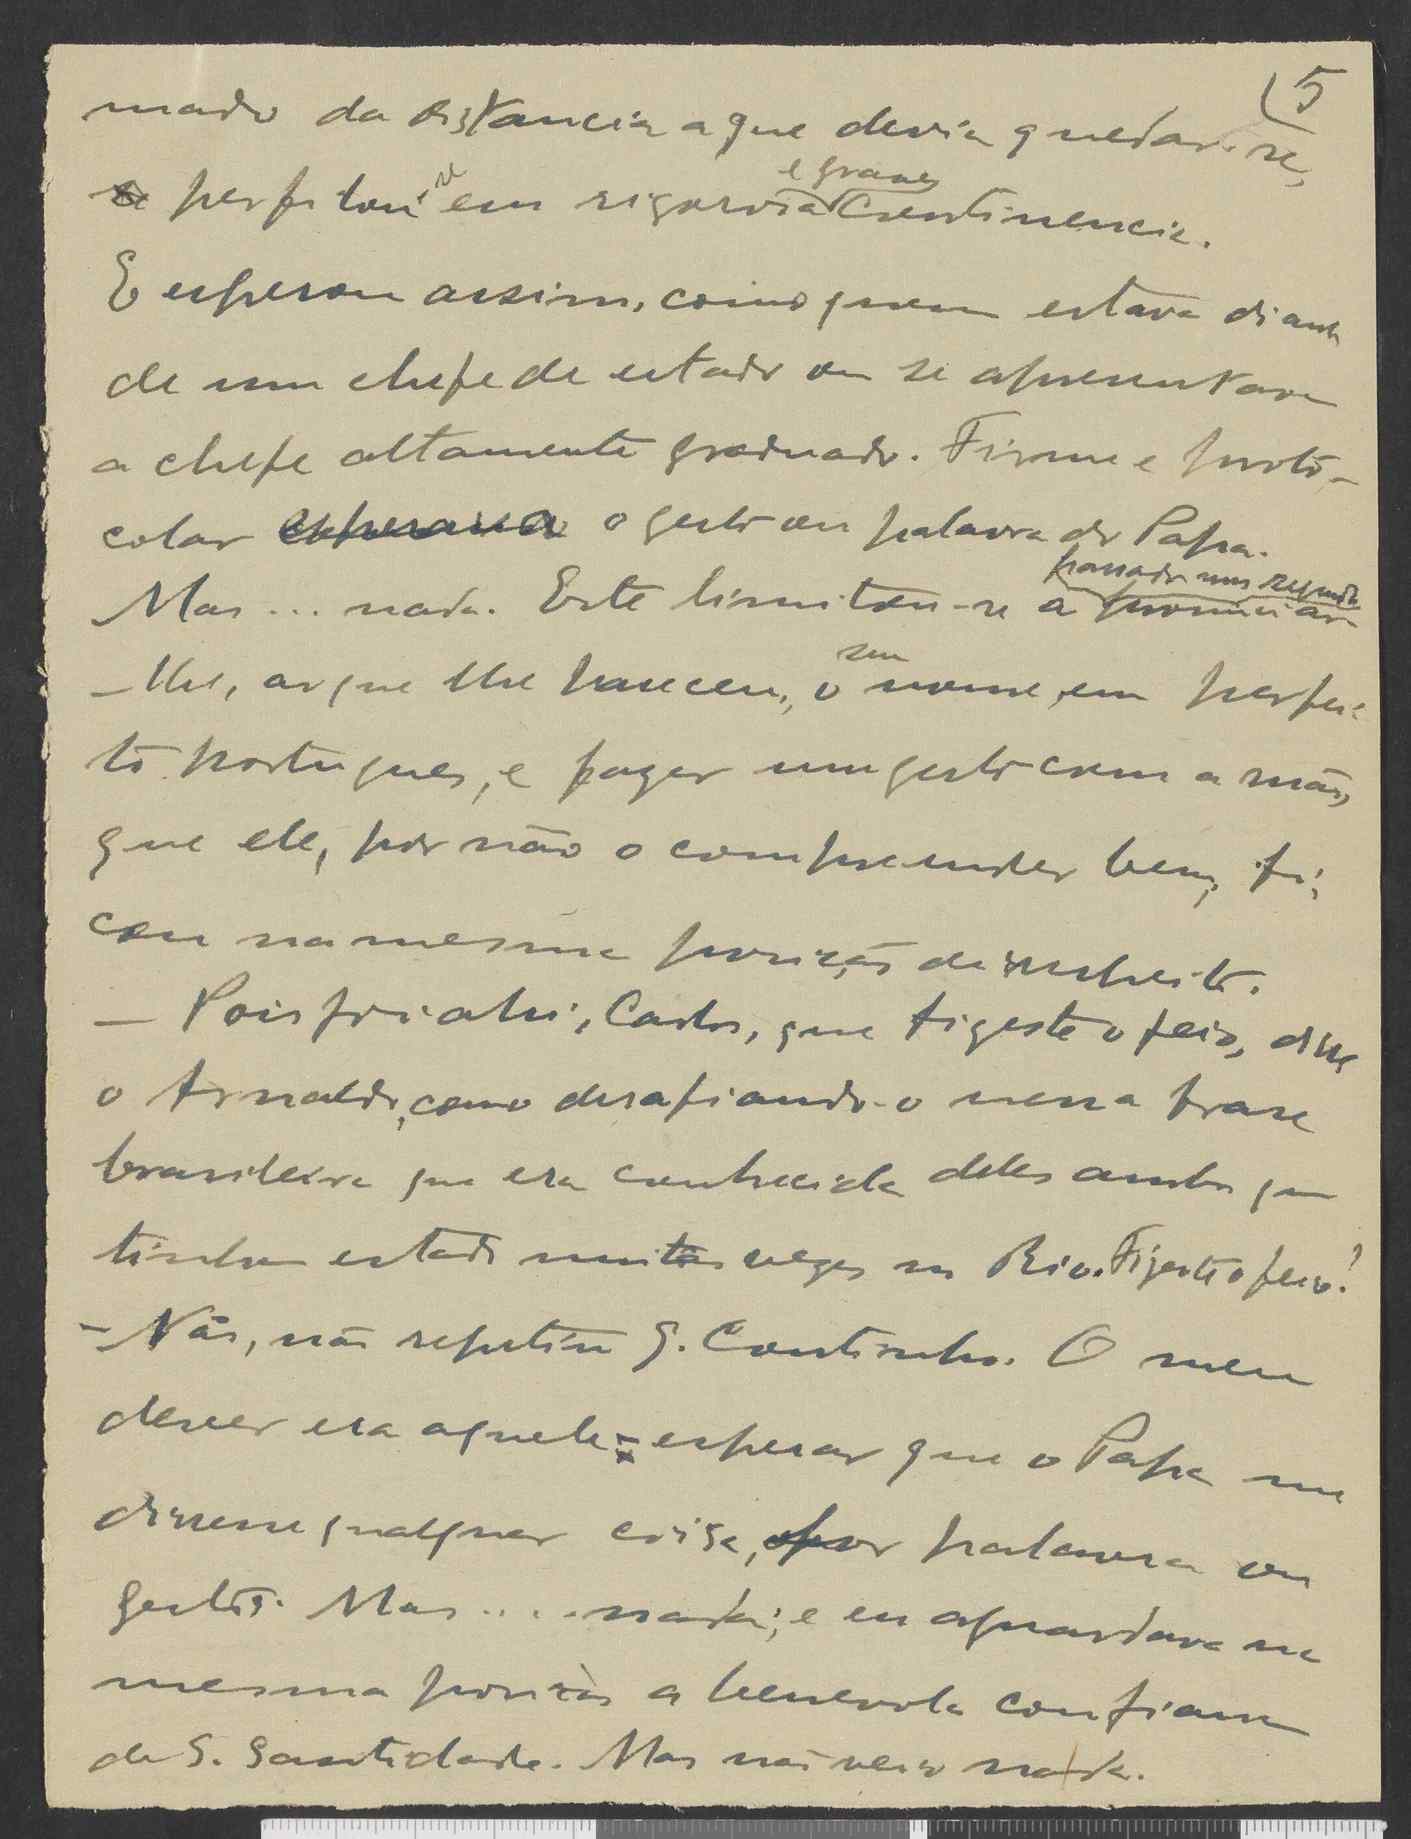 (5
mado da distancia a que devia quedar-se,
perfilou-se em rigorosa e grave continencia.
E esperou assim, como quem estava diante
de um chefe de estado ou se apresentava
a chefe altamente graduado. Firme e proto-
colar esperava o gesto ou palavra do Papa.
Mas... nada. Este limitou-se a passado um segundo pronunciar-
-lhe, ao que lhe pareceu, o seu nome, em perfei-
to portugues, e fazer um gesto com a mão,
que ele, por não o compreender bem, fi-
cou na mesma posição de respeito.
- Pois foi ahi, Carlos, que fizeste o feio, disse
o Arnaldo, como desafiando-o nessa frase
brasileira que era conhecida deles ambos que
tinham estado muitas vezes no Rio. Fizeste o feio!
- Não, não repetiu G. Coutinho. O meu
dever era aquele: esperar que o Papa me
dissesse qualquer coisa, por palavra ou
gesto. Mas.... nada; e eu aguardava na
mesma posição a benevola confiança
de S. Santidade. Mas não veio nada.